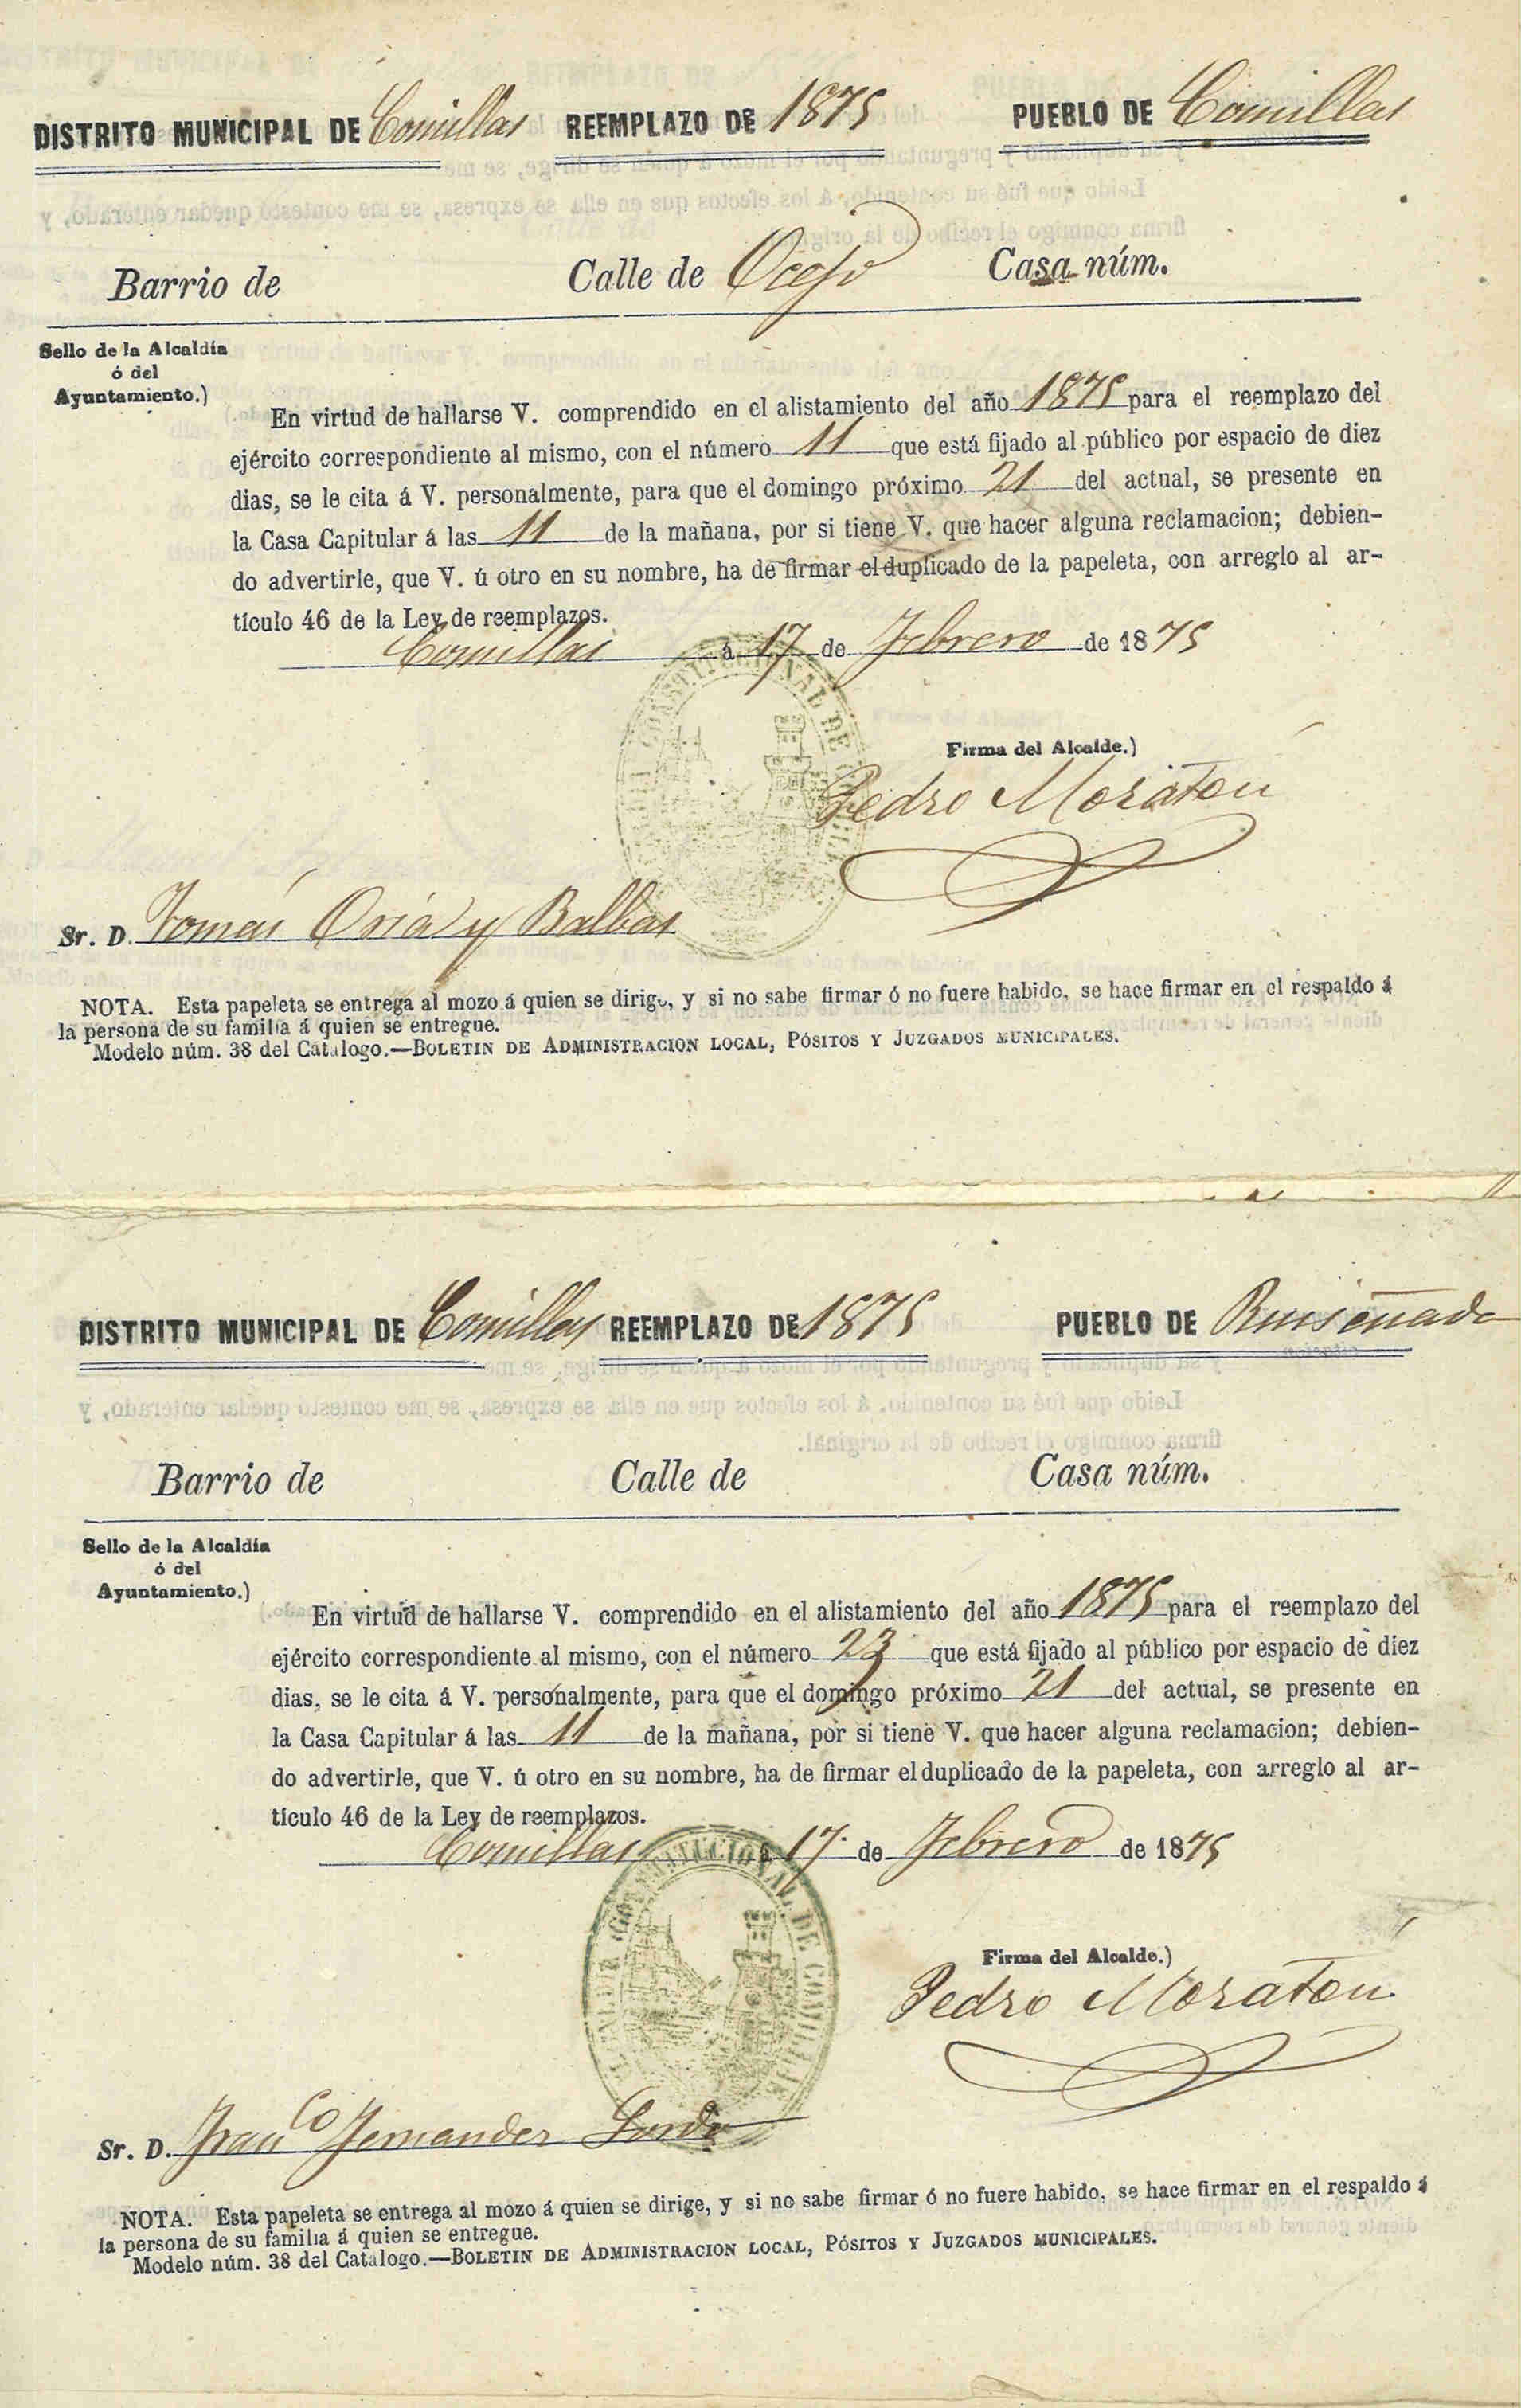 DISTRITO MUNICIPAL DE Comillas REEMPLAZO DE 1875 PUEBLO DE Comillas
Barrio de Calle de Ocejo Casa núm.
Sello de la Alcaldía
ó del
Ayuntamiento.)
En virtud de hallarse V. comprendido en el alistamiento del año 1875 para el reemplazo del
ejército correspondiente al mismo, con el número 11 que está fijado al público por espacio de diez
dias, se le cita á V. personalmente, para que el domingo próximo 21 del actual, se presente en
la Casa Capitular á las 11 de la mañana, por si tiene V. que hacer alguna reclamacion; debien-
do advertirle, que V. ú otro en su nombre, ha de firmar el duplicado de la papeleta, con arreglo al ar-
tículo 46 de la Ley de reemplazos.
Comillas á 17 de Febrero de 1875
CONSTITUCIONAL DE COMILLAS
Firma del Alcalde.)
Pedro Moraton
Sr. D. Tomás Oria y Balbas
NOTA. Esta papeleta se entrega al mozo á quien se dirige, y si no sabe firmar ó no fuere habido, se hace firmar en el respaldo á
la persona de su familia á quien se entregue.
Modelo núm. 38 del Catalogo.—BOLETIN DE ADMINISTRACION LOCAL, PÓSITOS Y JUZGADOS MUNICIPALES.
DISTRITO MUNICIPAL DE Comillas REEMPLAZO DE 1875 PUEBLO DE Ruiseñada
Barrio de Calle de Casa núm.
Sello de la Alcaldía
ó del
Ayuntamiento.)
En virtud de hallarse V. comprendido en el alistamiento del año 1875 para el reemplazo del
ejército correspondiente al mismo, con el número 23 que está fijado al público por espacio de diez
dias, se le cita á V. personalmente, para que el domingo próximo 21 del actual, se presente en
la Casa Capitular á las 11 de la mañana, por si tiene V. que hacer alguna reclamacion; debien-
do advertirle, que V. ú otro en su nombre, ha de firmar el duplicado de la papeleta, con arreglo al ar-
tículo 46 de la Ley de reemplazos.
Comillas á 17 de Febrero de 1875
CONSTITUCIONAL DE COMILLAS
Firma del Alcalde.)
Pedro Moraton
Sr. D. Franco Fernandez Gordo
NOTA. Esta papeleta se entrega al mozo á quien se dirige, y si no sabe firmar ó no fuere habido, se hace firmar en el respaldo á
la persona de su familia á quien se entregue.
Modelo núm. 38 del Catalogo.—BOLETIN DE ADMINISTRACION LOCAL, PÓSITOS Y JUZGADOS MUNICIPALES.